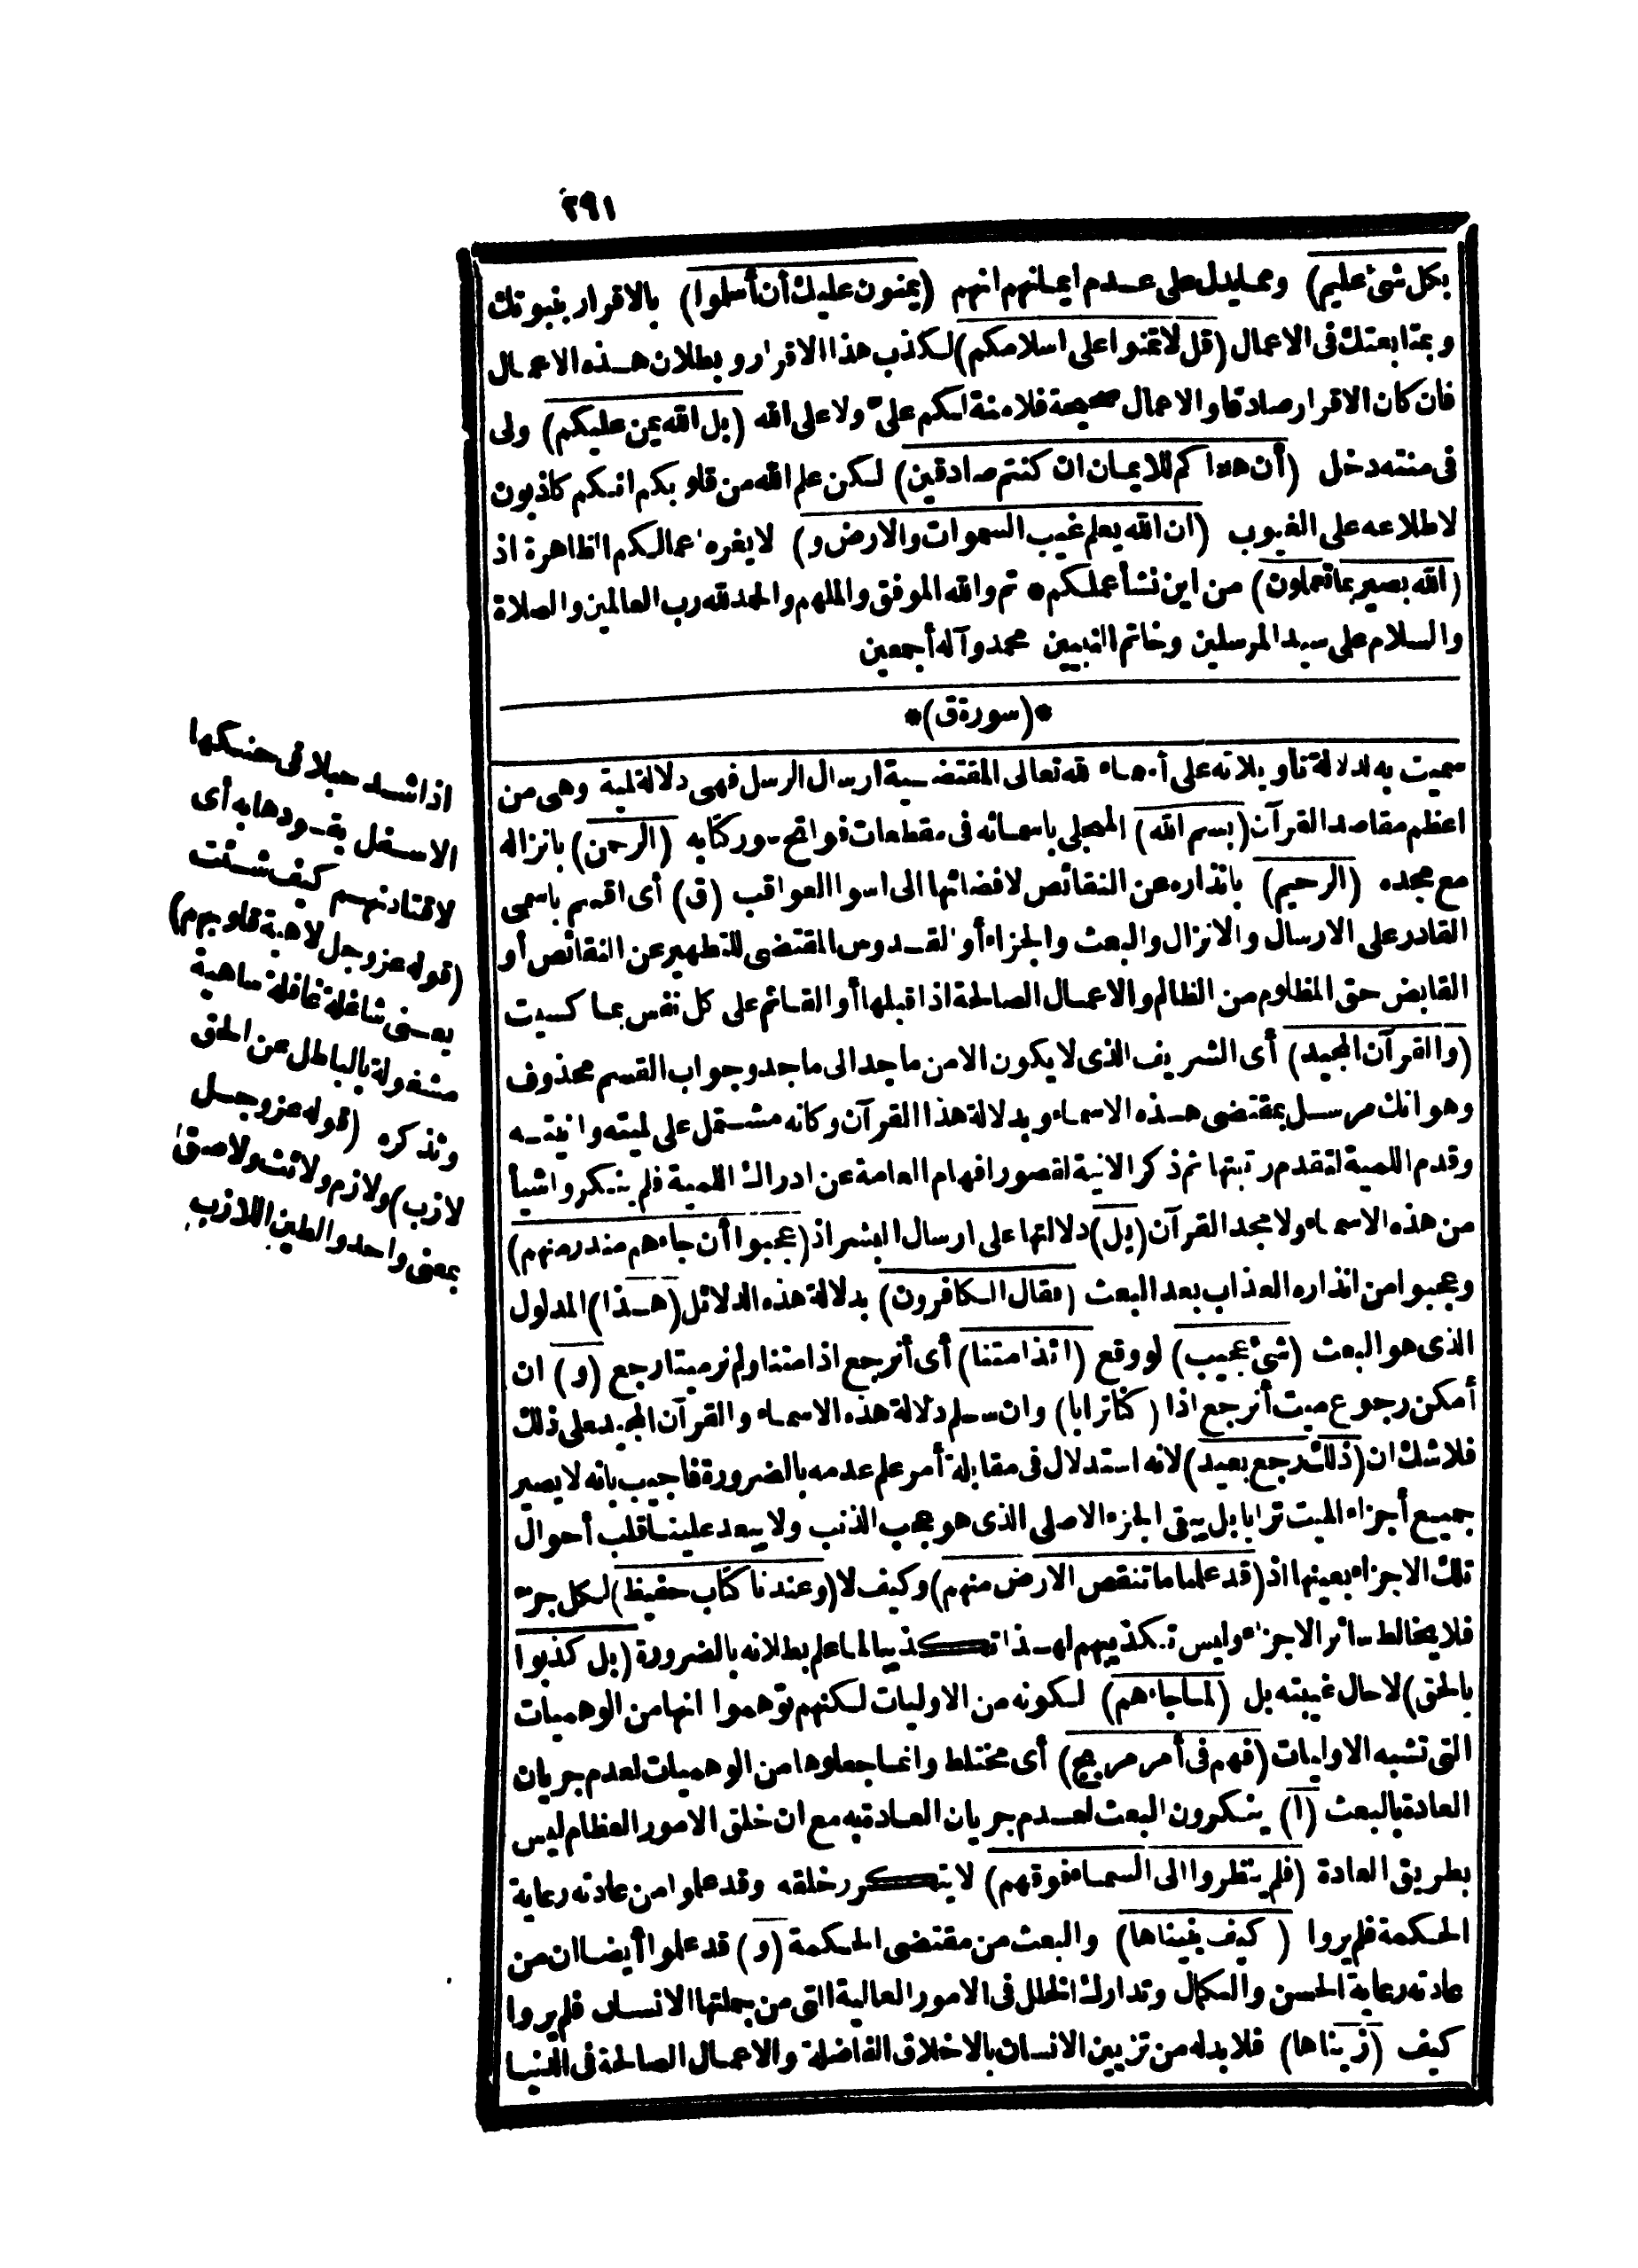 ٢٩١
بكل شئ عليم) ومما يدل على عدم ايمانهم انهم (يمنون عليك أن أسلموا) بالاقرار بنبوتك
وبمتابعتك فى الاعمال (قل لا تمنوا على اسلامكم) لكذب هذا الاقرار وبطلان هذه الاعمال
فان كان الاقرار صادقا والاعمال صحيحة فلا منة لكم علىّ ولا على الله (بل الله يمن عليكم) ولى
فى منته دخل (أن هداكم للايمان ان كنتم صادقين) لكن علم الله من قلوبكم انكم كاذبون
لاطلاعه على الغيوب (ان الله يعلم غيب السموات والارض و) لا يغره أعمالكم الظاهرة اذ
(الله بصير بما تعملون) من اين نشأ عملكم * تم والله الموفق والملهم والحمد لله رب العالمين والصلاة
والسلام على سيد المرسلين وخاتم النبيين محمد وآله أجمعين
*(سورة ق)*
سميت به لدلالة تأويلاته على أسماء لله تعالى المقتضية ارسال الرسل فهى دلالة لمية وهى من
اعظم مقاصد القرآن (بسم الله) المتجلى باسمائه فى مقطعات فواتح سور كتابه (الرحمن) بانزاله
مع مجده (الرحيم) بانذاره عن النقائص لافضائها الى اسوا العواقب (ق) أى اقسم باسمى
القادر على الارسال والانزال والبعث والجزاء أو القدوس المقتضى للتطهير عن النقائص أو
القابض حق المظلوم من الظالم والاعمال الصالحة اذا قبلها أو القائم على كل نفس بما كسبت
(والقرآن المجيد) أى الشريف الذى لا يكون الا من ماجد الى ماجد وجواب القسم محذوف
وهو انك مرسل بمقتضى هذه الاسماء وبدلالة هذا القرآن وكانه مشتمل على لميته وانيته
وقدم اللمية لتقدم رتبتها ثم ذكر الانية لقصور افهام العامة عن ادراك اللمية فلم ينكروا شيأ
من هذه الاسماء ولا مجد القرآن (بل) دلالتها على ارسال البشر اذ (عجبوا أن جاءهم منذر منهم)
وعجبوا من انذاره العذاب بعد البعث (فقال الكافرون) بدلالة هذه الدلائل (هذا) المدلول
الذى هو البعث (شئ عجيب) لو وقع (ائذا متنا) أى أنرجع اذا متنا ولم نر ميتا رجع (و) ان
أمكن رجوع ميت أنرجع اذا (كنا ترابا) وان سلم دلالة هذه الاسماء والقرآن المجيد على ذلك
فلا شك ان (ذلك رجع بعيد) لانه استدلال فى مقابلة أمر علم عدمه بالضرورة فاجيب بانه لا يصير
جميع أجزاء الميت ترابا بل يبقى الجزء الاصلى الذى هو عجب الذنب ولا يبعد علينا قلب أحوال
تلك الاجزاء بعينها اذ (قد علمنا ما تنقص الارض منهم) وكيف لا (وعندنا كتاب حفيظ) لكل جزء
فلا يخالط سائر الاجزاء وليس تكذيبهم لهذا تكذيبا لما علم بطلانه بالضرورة (بل كذبوا
بالحق) لا حال غيبته بل (لما جاءهم) لكونه من الاوليات لكنهم توهموا انها من الوهميات
التى تشبه الاوليات (فهم فى أمر مريج) أى مختلط وانما جعلوها من الوهميات لعدم جريان
العادة بالبعث (أ) ينكرون البعث لعدم جريان العادة به مع ان خلق الامور العظام ليس
بطريق العادة (فلم ينظروا الى السماء فوقهم) لا يتكرر خلقه وقد علموا من عادته رعاية
الحكمة فلم يروا (كيف بنيناها) والبعث من مقتضى الحكمة (و) قد علموا أيضا ان من
عادته رعاية الحسن والكمال وتدارك الخلل فى الامور العالية التى من جملتها الانسان فلم يروا
كيف (زيناها) فلا بد له من تزيين الانسان بالاخلاق الفاضلة والاعمال الصالحة فى الدنيا
اذا شد حبلا فى حنكها
الاسفل يقودها به أى
لاقتادنهم كيف شئت
(قوله عز وجل لاهية قلوبهم)
يعنى شاغلة غافلة ساهية
مشغولة بالباطل عن الحق
وتذكره (قوله عز وجل
لازب) ولازم ولاتث ولاصق
بمعنى واحد والطين اللازب